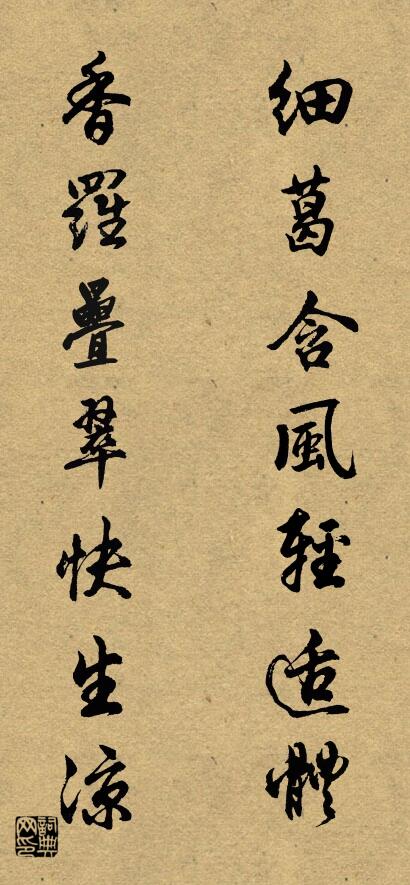 細葛含風輕适體
香羅疊翠快生涼
詞典网印